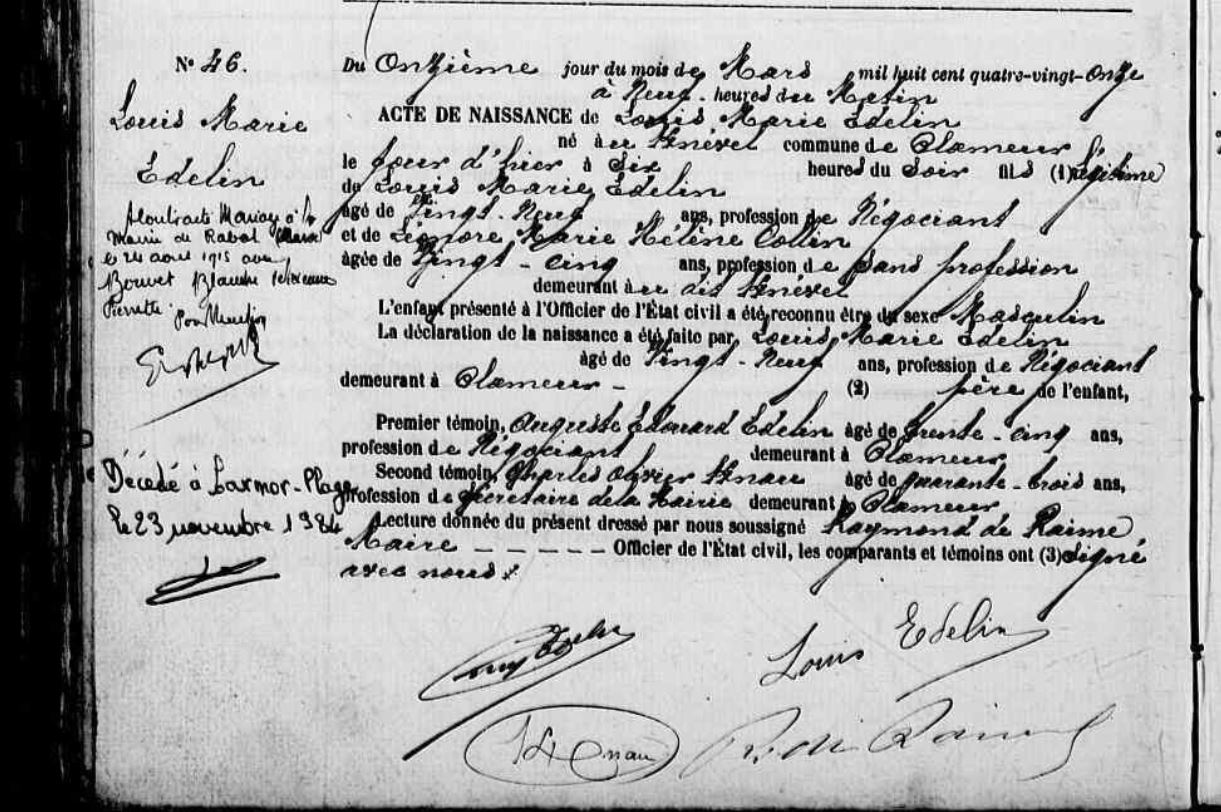 N° 46.
Louis Marie
Edelin
a contracté Mariage à la
Mairie de Rabat
le 24 aout 1915 avec
Bouvet Blanche
Pierrette Pour Mention
Décédé à Larmor-Plage
le 23 novembre 1984
Du Onzième jour du mois de Mars mil huit cent quatre-vingt-Onze
à Neuf heures du Matin
ACTE DE NAISSANCE de Louis Marie Edelin
né à commune de Plœmeur
le jour d'hier à Six heures du Soir fils (1) légitime
de Louis Marie Edelin
âgé de Vingt-Neuf ans, profession de Négociant
et de Léonore Marie Hélène Collin
âgée de Vingt-cinq ans, profession de sans profession
demeurant à dit
L'enfant présenté à l'Officier de l'État civil a été reconnu être du sexe Masculin
La déclaration de la naissance a été faite par Louis Marie Edelin
âgé de Vingt-Neuf ans, profession de Négociant
demeurant à Plœmeur - (2) père de l'enfant,
Premier témoin, Auguste Edouard Edelin âgé de trente-cinq ans,
profession de Négociant demeurant à Plœmeur
Second témoin, Charles Olivier âgé de quarante-trois ans,
profession de Secretaire de la Mairie demeurant à Plœmeur
Lecture donnée du présent dressé par nous soussigné Raymond de Raime
Maire - - - - - Officier de l'État civil, les comparants et témoins ont (3) signé
avec nous
Louis Edelin